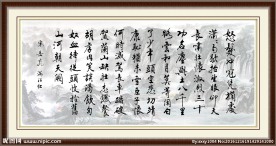 怒髮衝冠憑欄處
瀟瀟雨歇抬望眼仰天
長嘯壯懷激烈三十
功名塵與土八千里
路雲和月莫等閒白
了少年頭空悲切靖
康恥猶未雪臣子恨
何時滅駕長車踏破
賀蘭山缺壯志飢餐
胡虜肉笑談渴飲匈
奴血待從頭收拾舊
山河朝天闕
昵图网 www.nipic.com